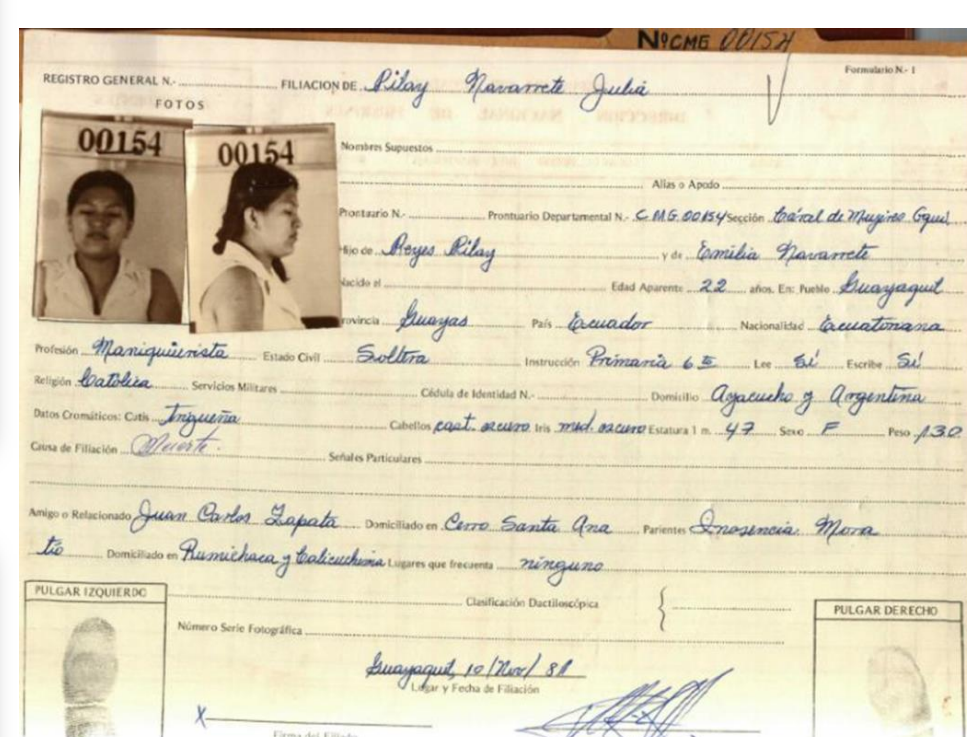 NºCME 00154
Formulario N.- 1
REGISTRO GENERAL N.- FILIACION DE Pilay Navarrete Julia
FOTOS
00154
00154
Nombres Supuestos
Alias o Apodo
Prontuario N.- Prontuario Departamental N.- C.M.G. 00154 Sección Cárcel de Mujeres Gquil
Hijo de Reyes Pilay y de Emilia Navarrete
Nacido el Edad Aparente 22 años. En: Pueblo Guayaquil
rovincia Guayas País Ecuador Nacionalidad Ecuatoriana
Profesión Maniquierista Estado Civil Soltera Instrucción Primaria 6 Lee Sí Escribe Sí
Religión Católica Servicios Militares Cédula de Identidad N.- Domicilio Ayacucho y Argentina
Datos Cromáticos: Cutis Trigueña Cabellos cast. oscuro Iris med. oscuro Estatura 1 m. 47 Sexo F Peso 130
Causa de Filiación Muerte. Señales Particulares
Amigo o Relacionado Juan Carlos Zapata Domiciliado en Cerro Santa Ana Parientes Inosencia Mora
tío Domiciliado en Rumichaca y Calicuchima Lugares que frecuenta ninguno
PULGAR IZQUIERDO
Clasificación Dactiloscópica
PULGAR DERECHO
Número Serie Fotográfica
Guayaquil, 10/Nov/81
Lugar y Fecha de Filiación
X
Firma del Filiado